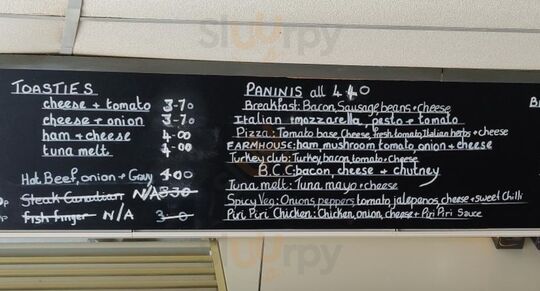 Sluurpy
TOASTIES
cheese + tomato 3-70
cheese + onion 3-70
ham + cheese 4-00
tuna melt 4-00
Hot Beef, onion + Gravy 4.00
Steak Canadian N/A
fish finger N/A
PANINIS all 4
Breakfast: Bacon, Sausage, beans + cheese
Italian: mozzarella, pesto + tomato
Pizza: Tomato base, Cheese, fresh tomato, Italian herbs + cheese
FARMHOUSE: ham, mushroom, tomato, onion + cheese
Turkey club: Turkey, bacon, tomato + cheese
B.C.C: bacon, cheese + chutney
Tuna melt: Tuna mayo + cheese
Spicy Veg: Onions, peppers, tomato, jalepenos, cheese + sweet Chilli
Piri Piri Chicken: Chicken, onion, cheese + Piri Piri Sauce
B
Sluurpy